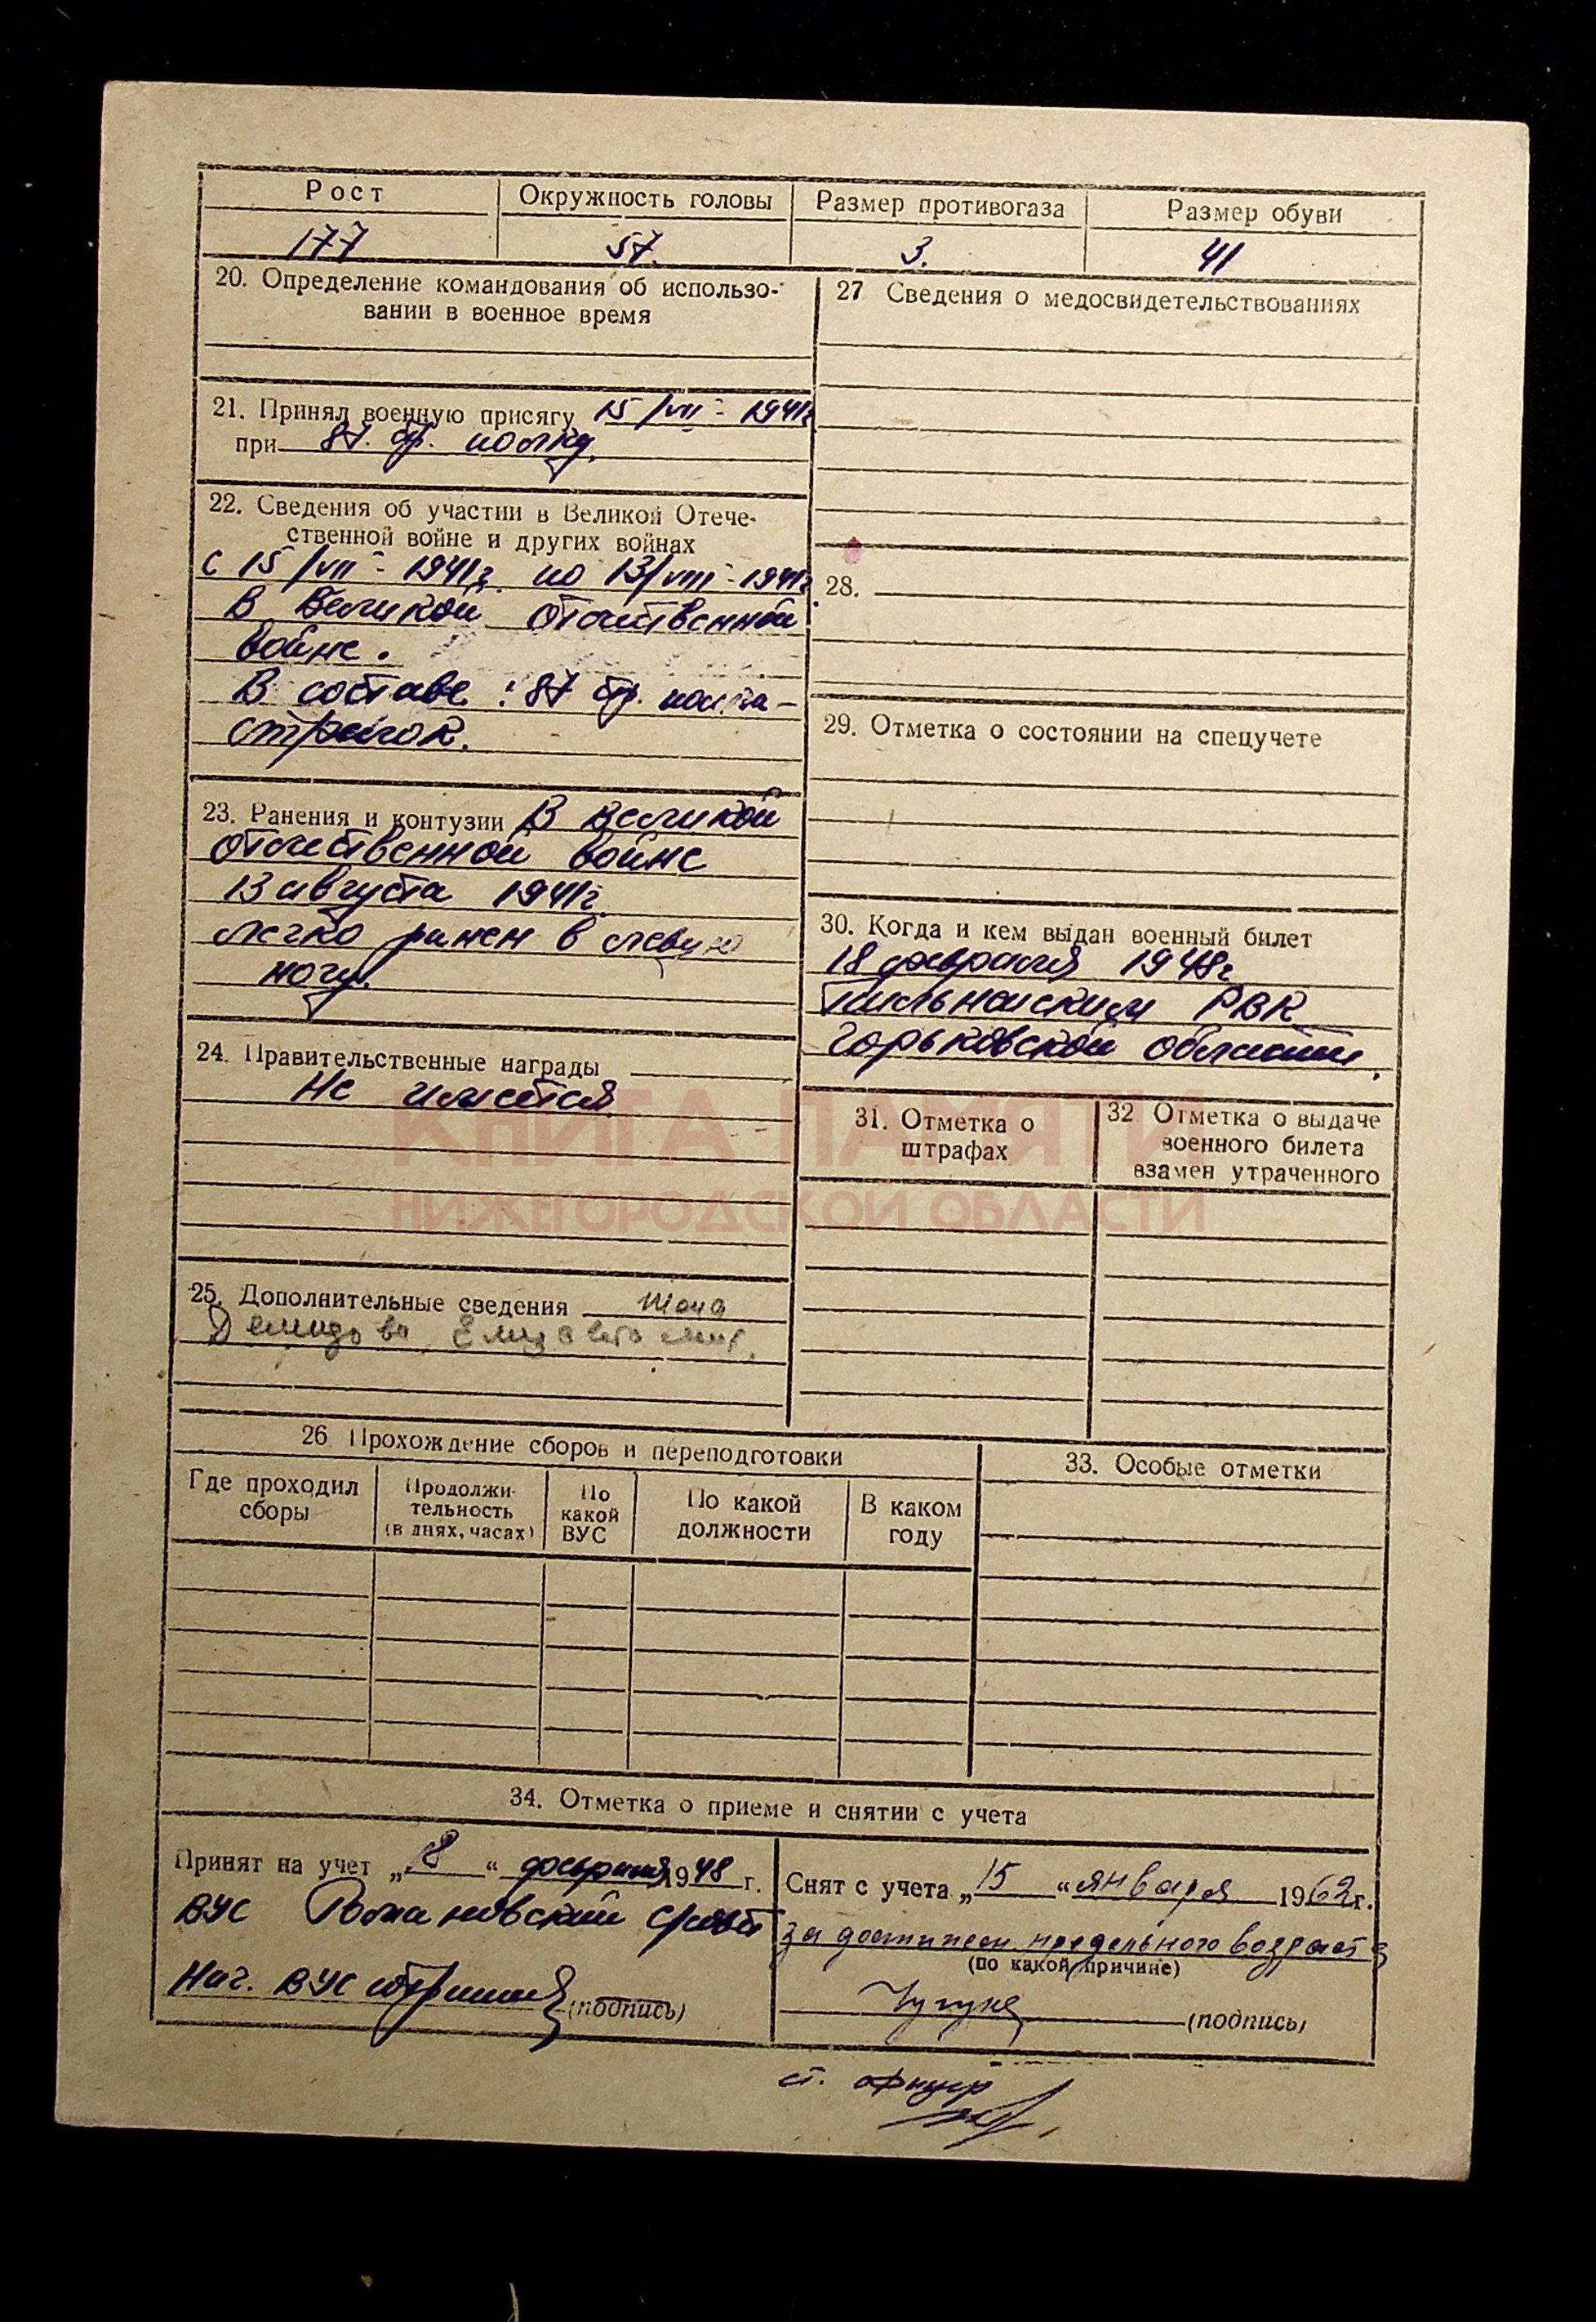 Рост
Окружность головы
Размер противогаза
Размер обуви
177
57.
3.
41
20. Определение командования об использо-
вании в военное время
21. Принял военную присягу 15/VII - 1941г.
при 87. стр. полку.
22. Сведения об участии в Великой Отече-
ственной войне и других войнах
С 15/VII - 1941г. по 13/VIII - 1941г.
В Великой отечественной
войне.
В составе: 87 стр. полка -
стрелок.
23. Ранения и контузии В Великой
отечественной войне
13 августа 1941г.
легко ранен в левую
ногу.
24. Правительственные награды
Не имеется
25. Дополнительные сведения жена
Демидова Елизавета
27 Сведения о медосвидетельствованиях
28.
29. Отметка о состоянии на спецучете
30. Когда и кем выдан военный билет
18 февраля 1948г.
Пильнинским РВК
Горьковской области.
31. Отметка о
штрафах
32 Отметка о выдаче
военного билета
взамен утраченного
КНИГА ПАМЯТИ
НИЖЕГОРОДСКОЙ ОБЛАСТИ
26 Прохождение сборов и переподготовки
Где проходил
сборы
Продолжи-
тельность
(в днях, часах)
По
какой
ВУС
По какой
должности
В каком
году
33. Особые отметки
34. Отметка о приеме и снятии с учета
Принят на учет „ “ февраля 1948 г.
ВУС
Нач. ВУС
(подпись)
Снят с учета „15 “ января 1962г.
за достижен. предельного возраста
(по какой причине)
(подпись)
ст. офицер